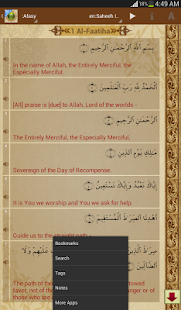 4:49 AM
Afasy
en:Saheeh I..
A
1 Al-Faatiha
بِسْمِ اللَّهِ الرَّحْمَٰنِ الرَّحِيمِ
In the name of Allah, the Entirely Merciful, the
Especially Merciful.
الْحَمْدُ لِلَّهِ رَبِّ الْعَالَمِينَ
[All] praise is [due] to Allah, Lord of the worlds -
الرَّحْمَٰنِ الرَّحِيمِ
The Entirely Merciful, the Especially Merciful,
مَالِكِ يَوْمِ الدِّينِ
Sovereign of the Day of Recompense.
إِيَّاكَ نَعْبُدُ وَإِيَّاكَ نَسْتَعِينُ
It is You we worship and You we ask for help.
اهْدِنَا الصِّرَاطَ الْمُسْتَقِيمَ
Guide us to the straight path -
صِرَاطَ الَّذِينَ أَنْعَمْتَ عَلَيْهِمْ غَيْرِ الْمَغْضُوبِ عَلَيْهِمْ وَلَا
الضَّالِّينَ
The path of
favor, not of
anger or of
Bookmarks
Search
Tags
Notes
More Apps